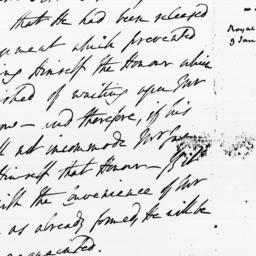 that He had been released
which prevented
ing Himself the Honour which
ished of waiting upon Your
and therefore, if his
ll not incommode Your
Himself that Honour
ith the Convenience of Your
as already formed, He will be
Royal
9 Jan